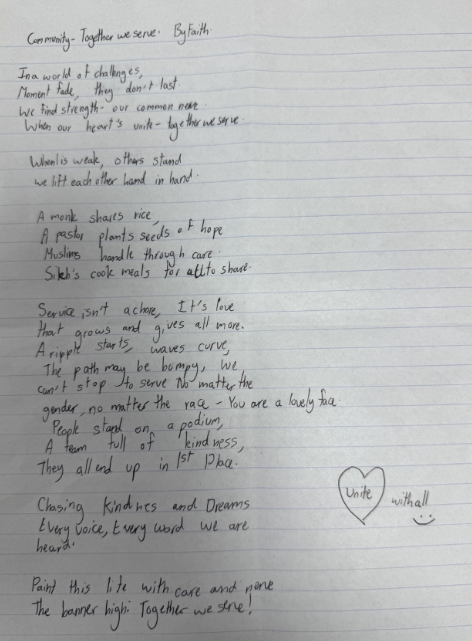 Community - Together we serve. By Faith
In a world of challenges,
Moment fade, they don't last.
We find strength - our common nerve
When our heart's unite - together we serve.
When is weak, others stand
we lift each other hand in hand.
A monk shares rice,
A pastor plants seeds of hope
Muslims handle through care.
Sikh's cook meals for all to share.
Service isn't a chore, It's love
that grows and gives all more.
A ripple starts, waves curve,
The path may be bumpy, we
can't stop to serve No matter the
gender, no matter the race - You are a lovely face.
People stand on a podium,
A team full of kindness,
They all end up in 1st Place.
Chasing kindnes and Dreams
Every voice, Every word we are
heard.
Unite with all
Paint this life with care and
The banner high: Together we serve!